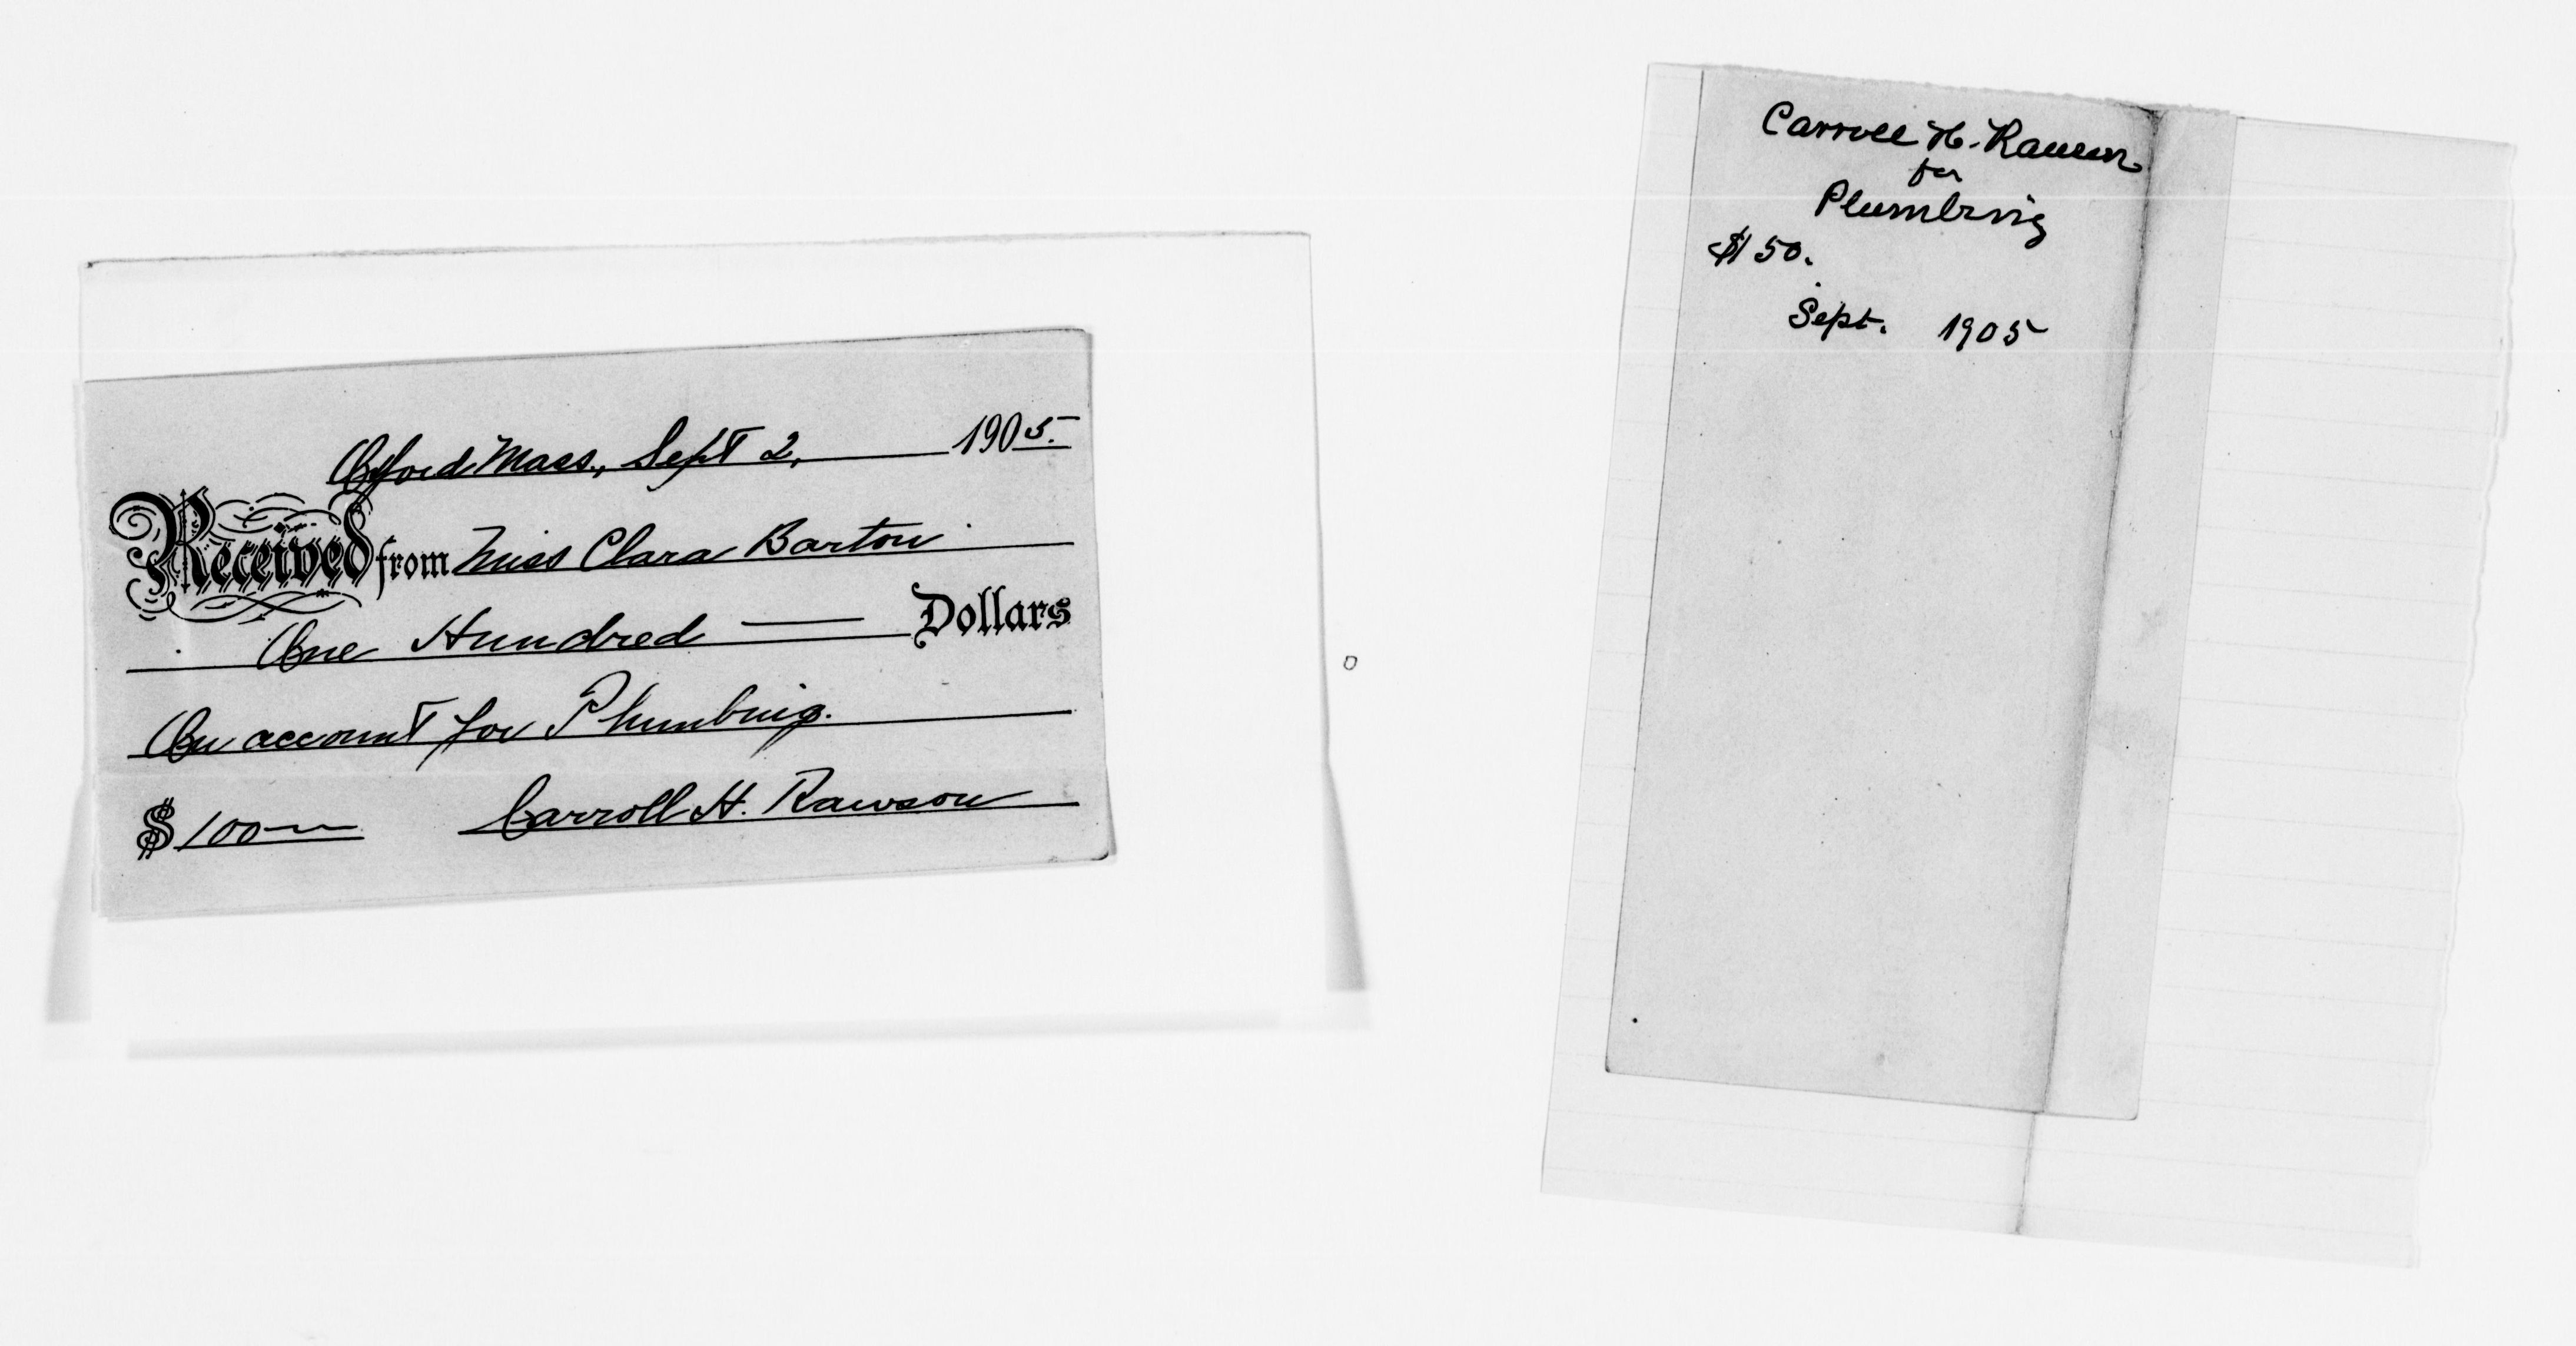 Oxford, Mass., Sept 2, 1905.
Received from Miss Clara Barton
One Hundred — Dollars
On account for Plumbing.
$ 100 — Carroll H. Rawson
Carroll H. Rawson
for
Plumbing
$150.
Sept. 1905